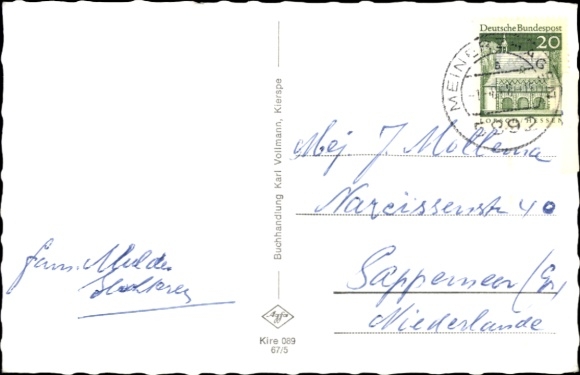 Deutsche Bundespost
20
LORSCH HESSEN
MEINERZHAGEN
a
5892
Mej. J. Mollema
Narcissenstr 40
Sappemeer (Gr.)
Niederlande
Fam. Mulder
Buchhandlung Karl Vollmann, Kierspe
Agfa
Kire 089
67/5